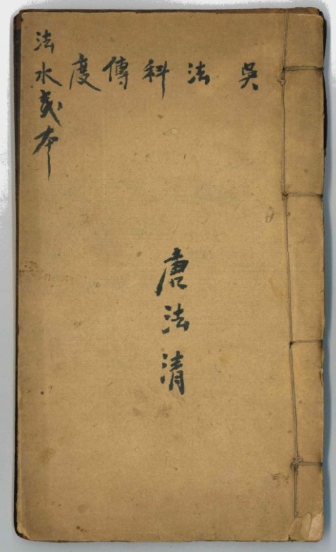 吳法科傳度
唐法清
法水本